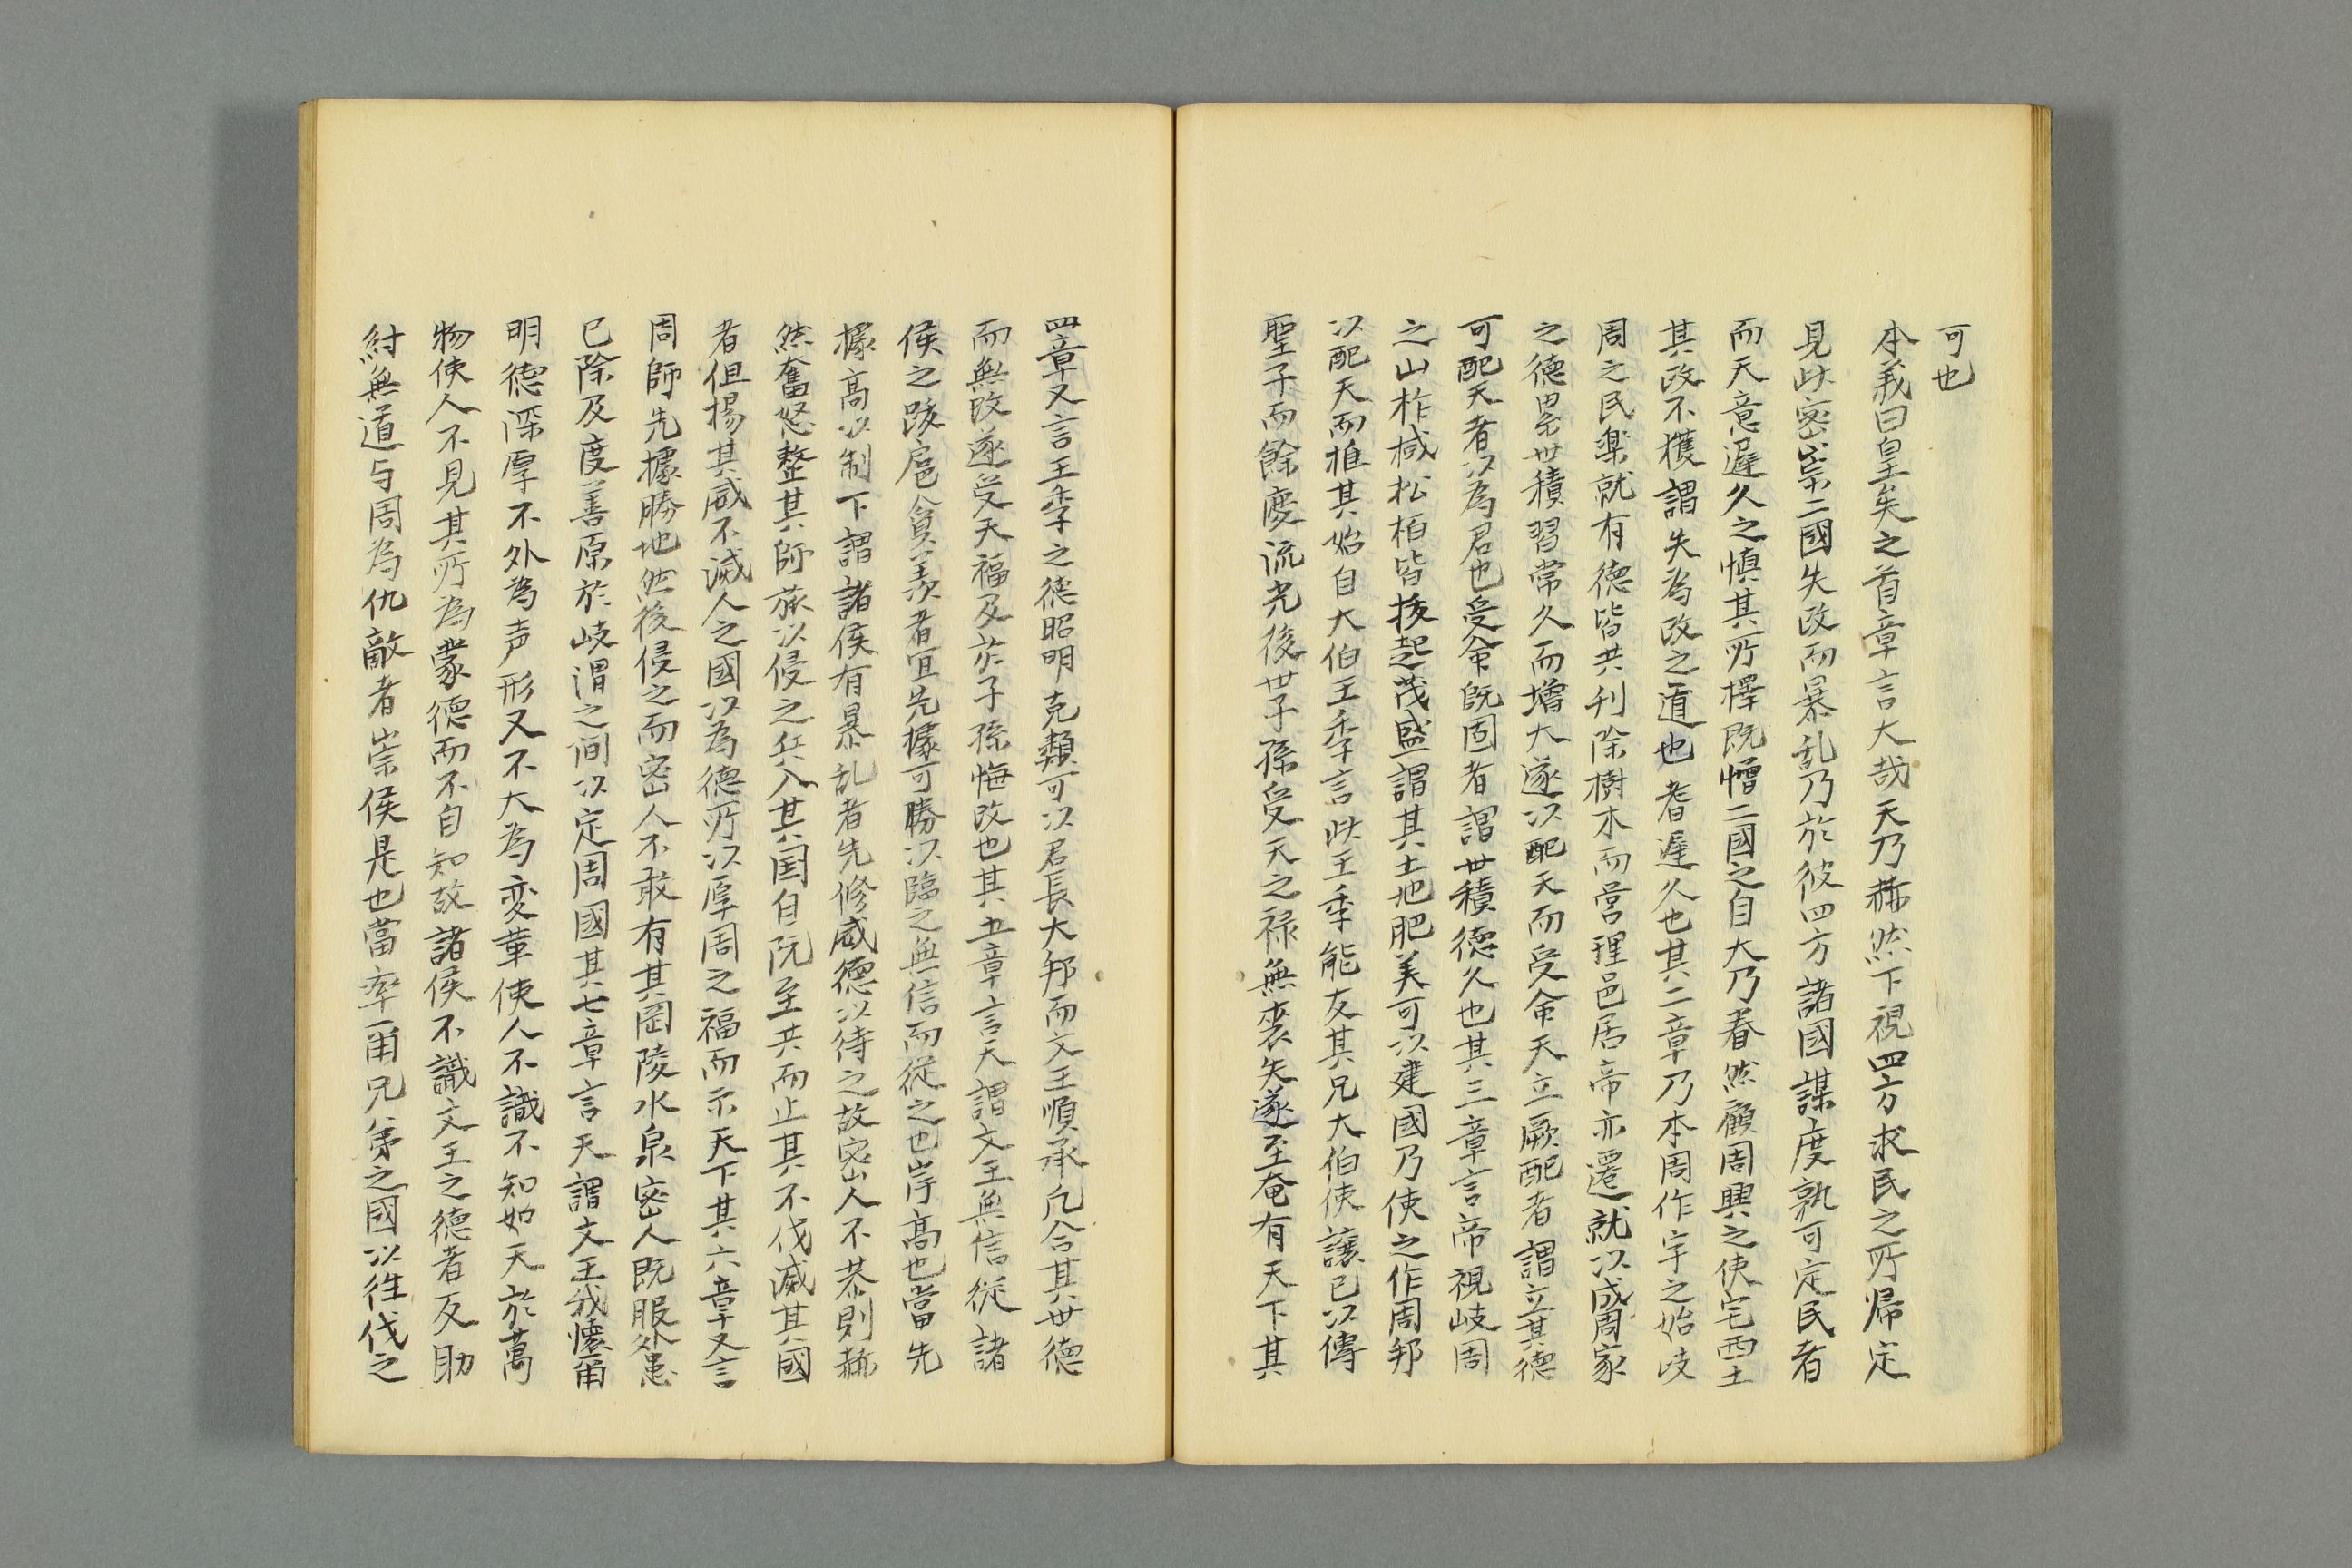 可也
本義曰皇矣之首章言大哉天乃赫然下視四方求民之所帰定
見此密崇二國失政而暴乱乃於彼四方諸國謀度孰可定民者
而天意遲久之慎其所擇既憎二國之自大乃眷然顧周興之使宅西土
其政不獲謂失為政之道也耆遲久也其二章乃本周作宇之始歧
周之民楽就有德皆共刊除樹木而営理邑居帝亦遷就以成周家
之德累世積習常久而增大遂以配天而受命天立厥配者謂立其德
可配天者以為君也受命既固者謂世積德久也其三章言帝視岐周
之山柞棫松柏皆拔起茂盛謂其土地肥美可以建國乃使之作周邦
以配天而推其始自大伯王季言此王季能友其兄大伯使讓已以傳
聖子而餘慶流光後世子孫受天之祿無喪矢遂至奄有天下其
四章又言王季之德昭明克類可以君長大邦而文王順承凢合其世德
而無改遂受天福及於子孫悔改也其五章言天謂文王無信從諸
侯之跋扈貪羨者宜先據可勝以臨之無信而從之也岸高也當先
據高以制下謂諸侯有暴乱者先修威德以待之故密人不恭則赫
然奮怒整其師旅以侵之兵入其国自阮至共而止其不伐滅其國
者但揚其威不滅人之國以為德所以厚周之福而示天下其六章又言
周師先據勝地然後侵之而密人不敢有其岡陵水泉密人既服外患
已除及度善原於岐渭之间以定周國其七章言天謂文王我懷爾
明德深厚不外為声形又不大為変革使人不識不知如天於萬
物使人不見其所為蒙德而不自知故諸侯不識文王之德者反助
紂無道与周為仇敵者崇侯是也當率爾兄弟之國以徃伐之